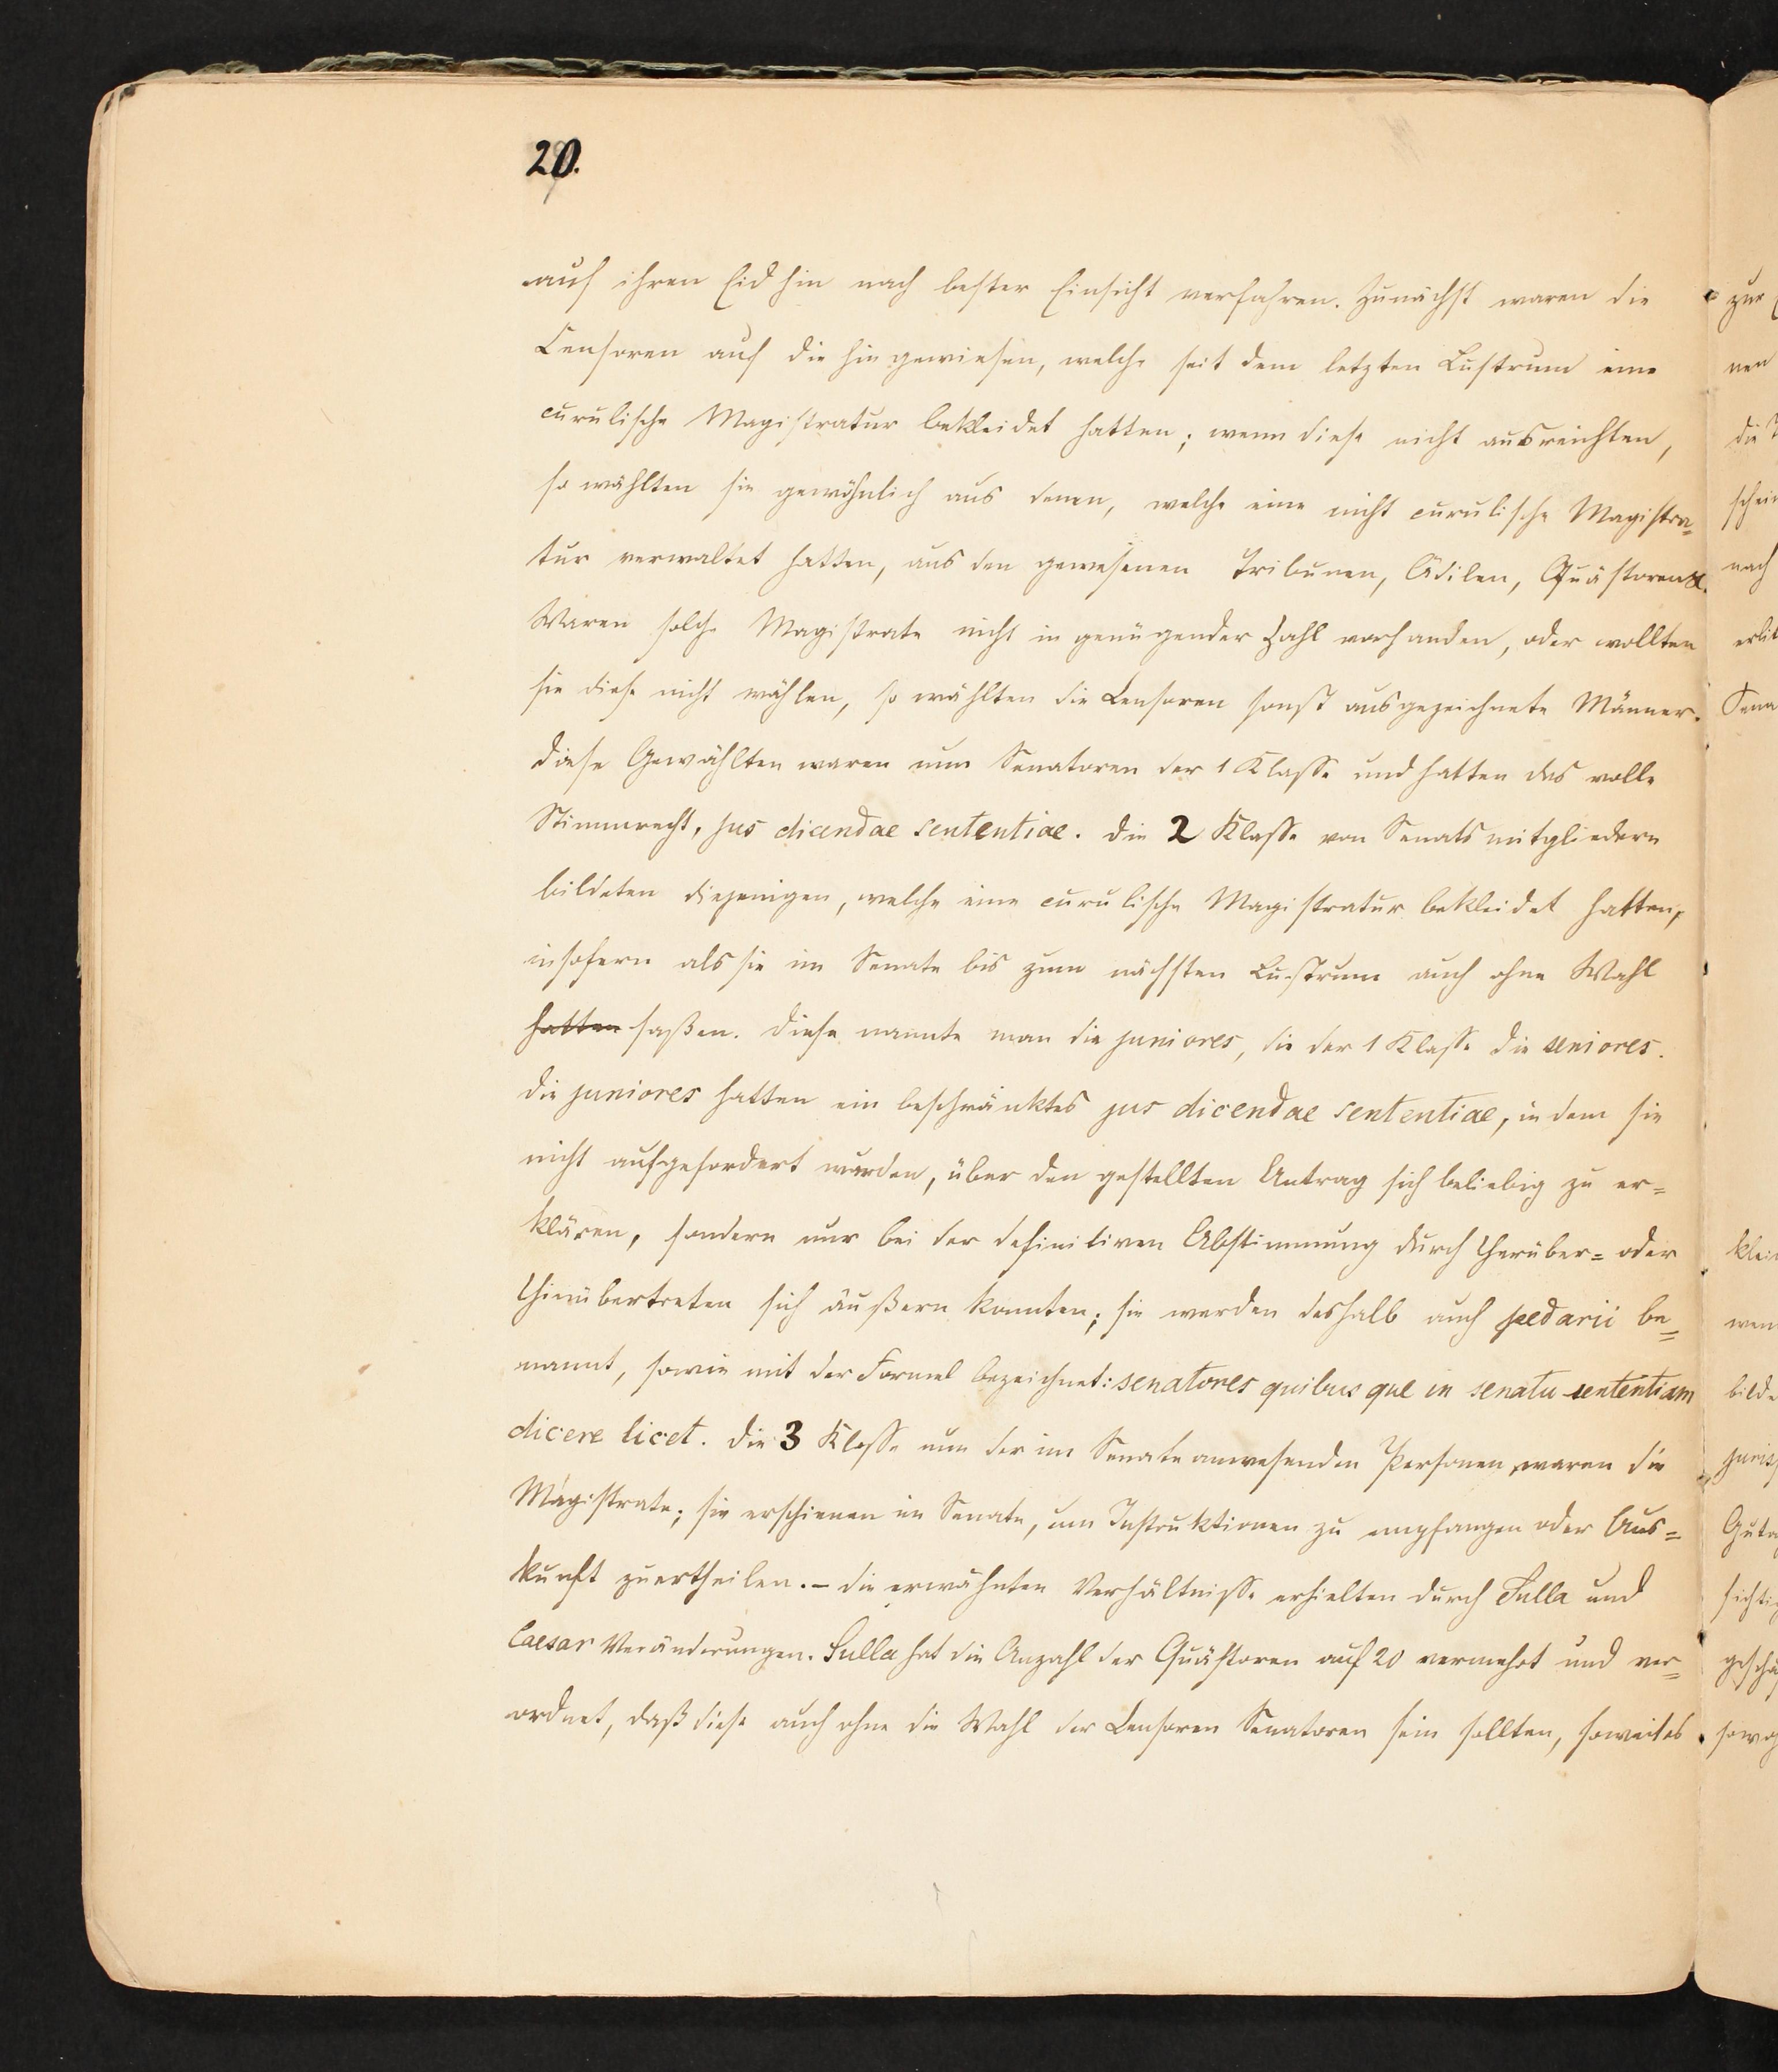 20.
auf ihren Eid hin nach bester Einsicht verfahren. Zunächst waren die
Censoren auf die hingewiesen, welche seit dem letzten Lustrum eine
curulische Magistratur bekleidet hatten; wenn diese nicht ausreichten,
so wählten sie gewöhnlich aus denen, welche eine nicht curulische Magistra=
tur verwaltet hatten, aus den gewesenen Tribunen, Ädilen, Quästoren.
Waren solche Magistrate nicht in genügender Zahl vorhanden, oder wollten
sie diese nicht wählen, so wählten die Censoren sonst ausgezeichnete Männer.
Diese Gewählten waren nun Senatoren der 1 Klasse und hatten das volle
Stimmrecht, jus dicendae sententiae. Die 2 Klasse von Senatsmitgliedern
bildeten diejenigen, welche eine curulische Magistratur bekleidet hatten,
insofern als sie im Senate bis zum nächsten Lustrum auch ohne Wahl
hatten saßen. Diese nannte man die juniores, die der 1 Klasse die seniores.
Die juniores hatten ein beschränktes jus dicendae sententiae, indem sie
nicht aufgefordert wurden, über den gestellten Antrag sich beliebig zu er=
klären, sondern nur bei der definitiven Abstimmung durch Herüber= oder
Hinübertreten sich äußern konnten; sie werden deshalb auch pedarii be=
nannt, sowie mit der Formel bezeichnet: senatores quibus que in senatu sententiam
dicere licet. Die 3 Klasse nun der im Senate anwesenden Personen waren die
Magistrate; sie erschienen im Senate, um Instruktionen zu empfangen oder Aus=
kunft zu ertheilen. – Die erwähnten Verhältnisse erhielten durch Sulla und
Caesar Veränderungen. Sulla hat die Anzahl der Quästoren auf 20 vermehrt und ver=
ordnet, daß diese auch ohne die Wahl der Censoren Senatoren sein sollten, soweit es